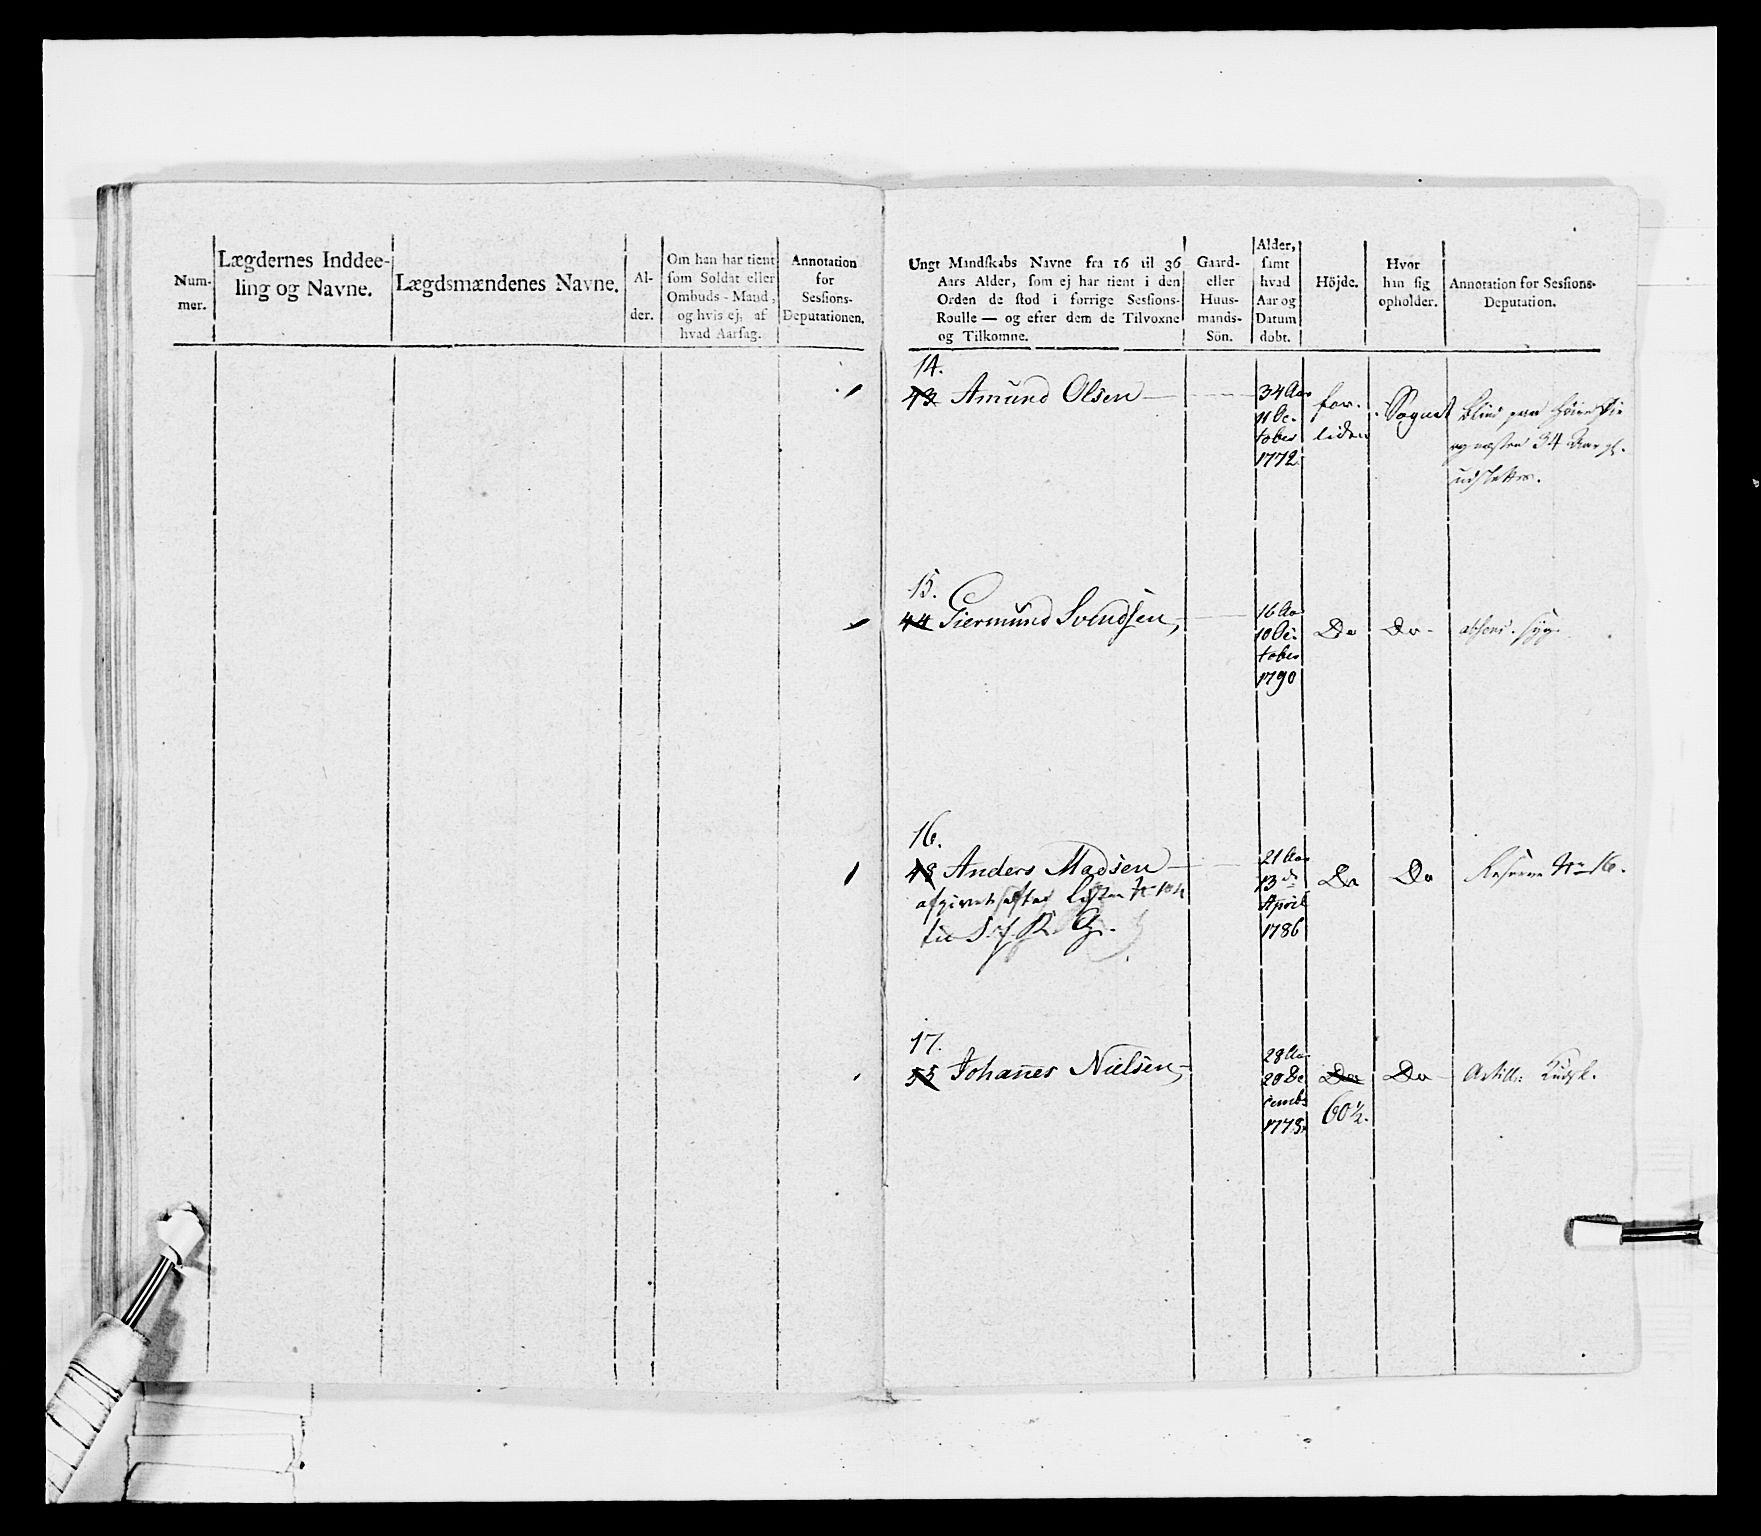 Num-
mer.
Lægdernes Inddee-
ling og Navne.
Lægdsmændenes Navne.
Al-
der.
Om han har tient
som Soldat eller
Ombuds-Mand,
og hvis ej, af
hvad Aarsag.
Annotation
for
Sessions-
Deputationen.
Ungt Mandskabs Navne fra 16 til 36
Aars Alder, som ej har tient i den
Orden de stod i forrige Sessions-
Roulle — og efter dem de Tilvoxne
og Tilkomne.
Gaard-
eller
Huus-
mands-
Sön.
Alder,
samt
hvad
Aar og
Datum
dobt.
Höjde.
Hvor
han sig
opholder.
Annotation for Sessions-
Deputation.
14.
43 Amund Olsen
34 Aar
11 Oc-
tober
1772.
for-
liden
Sognet
Blind paa høire Øie
og næsten 34 Aar gl.
udslettes.
15.
44 Giermund Svendsen,
16 Aar
10 Oc-
tober
1790
Do
Do
absent. syg.
16.
48 Anders Madsen
afgivet efter Listen No 104
til
21 Aar
13 de
April
1786
Do
Do
Reserve No 16.
17.
55 Johanes Nielsen,
28 Aar
20 De
cembr
1778.
Do
60 1/2.
Do
Artill: Kudsk.